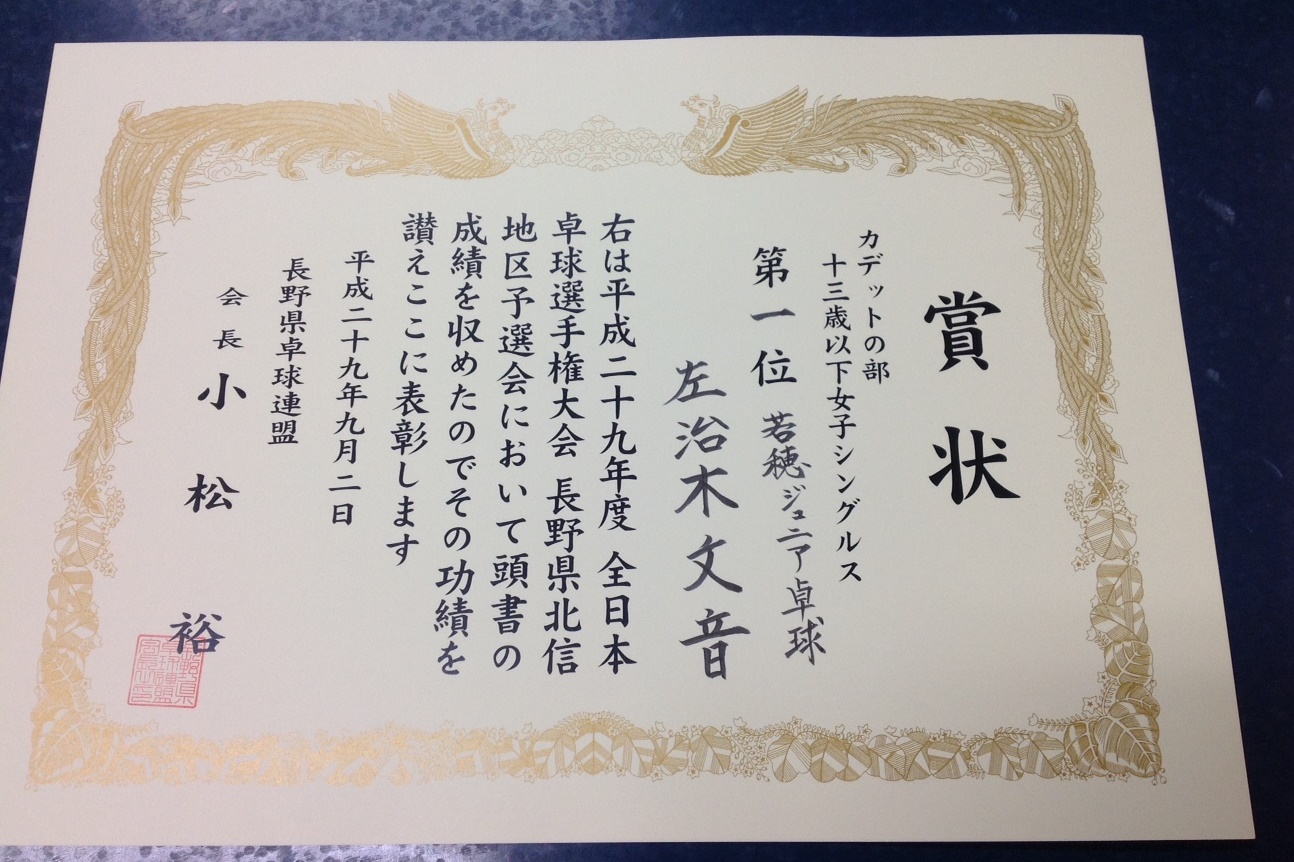 賞状
カデットの部
十三歳以下女子シングルス
第一位 若穂ジュニア卓球
左治木文音
右は平成二十九年度 全日本
卓球選手権大会 長野県北信
地区予選会において頭書の
成績を収めたのでその功績を
讃えここに表彰します
平成二十九年九月二日
長野県卓球連盟
会長 小松 裕